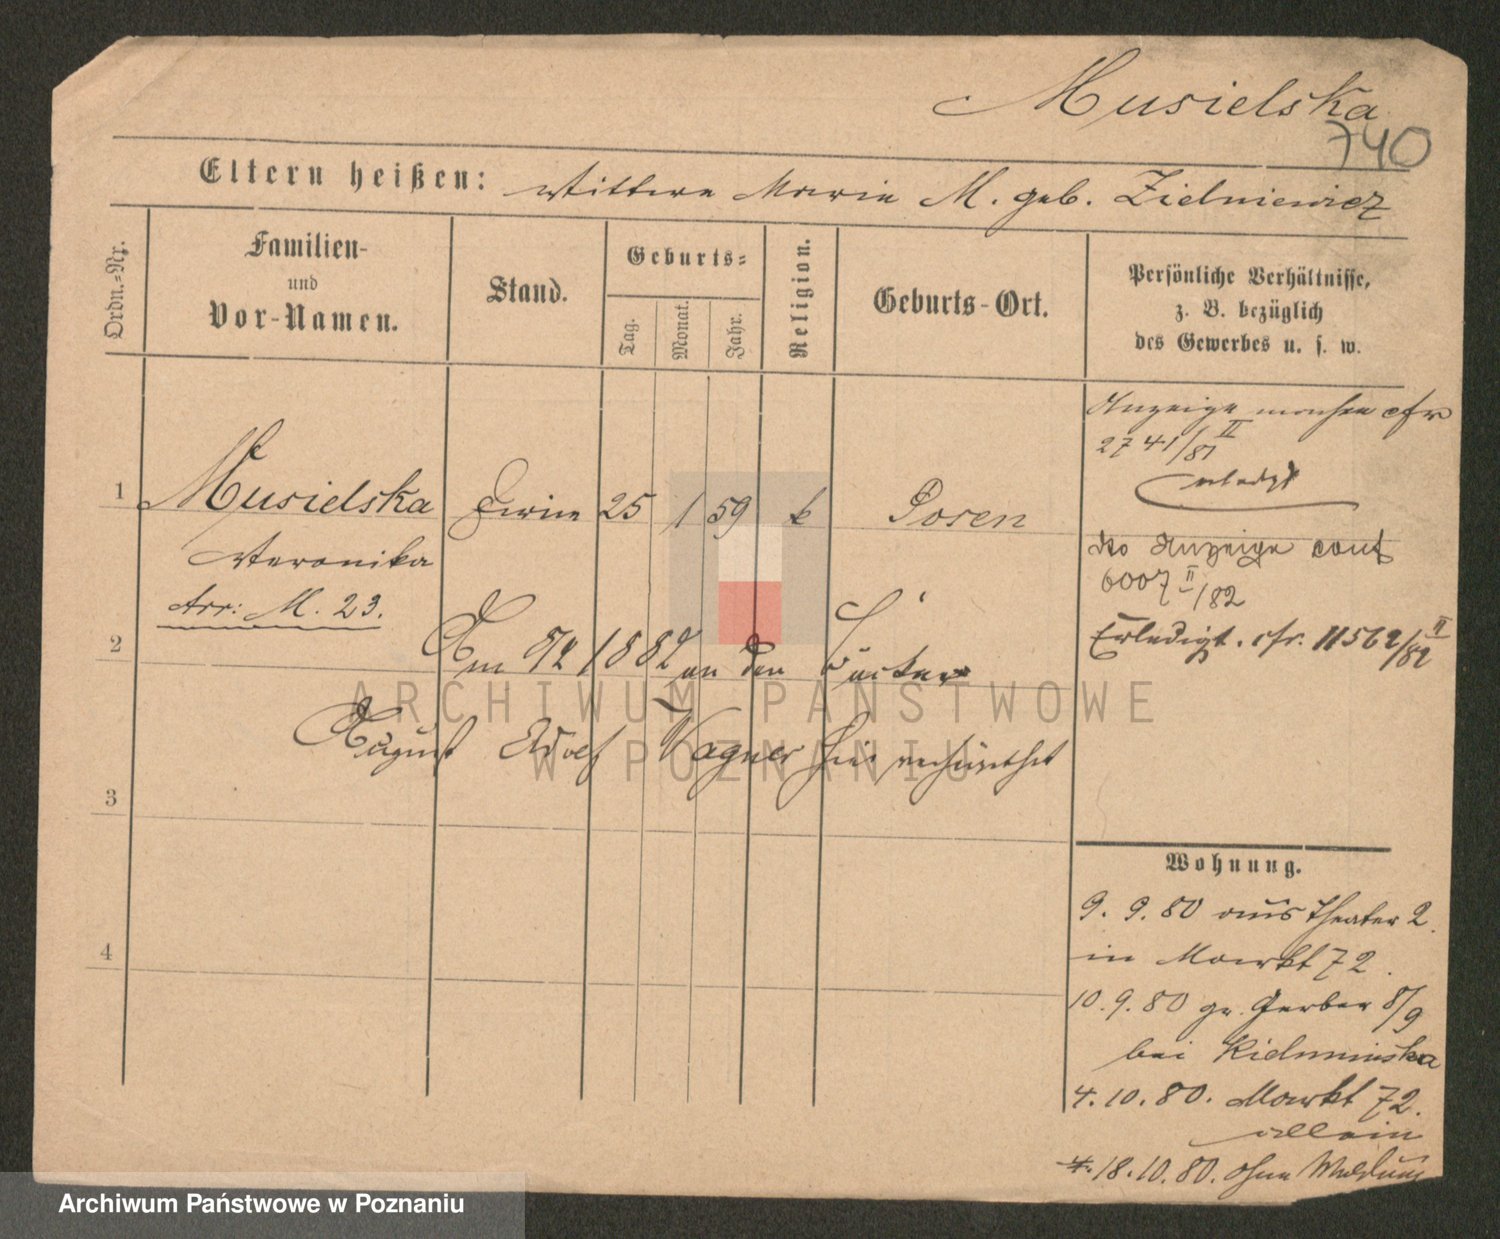 Musielska
740
Eltern heißen: Wittwe Marie M. geb. Zielniewicz
Ordn.-Nr.
Familien-
und
Vor-Namen.
Stand.
Geburts-
Tag.
Monat.
Jahr.
Religion.
Geburts-Ort.
Persönliche Verhältnisse,
z. B. bezüglich
des Gewerbes u. s. w.
Anzeige cfr
2741/81 II
erledigt
1 Musielska 25 1 59 k Posen
Veronika
Arr: M. 23.
dto Anzeige
6007 II/82
Erledigt. cfr. 11562/82 II
2
Am 9/2 1882 an den Bäcker
August Adolf Wagner hier verheirathet
3
4
Wohnung.
9. 9. 80 aus Theater 2.
in Markt 72.
10. 9. 80 gr. Gerber 8/9
bei
4. 10. 80. Markt 72.
allein
18. 10. 80. ohne Meldung
ARCHIWUM PAŃSTWOWE
W POZNANIU
Archiwum Państwowe w Poznaniu